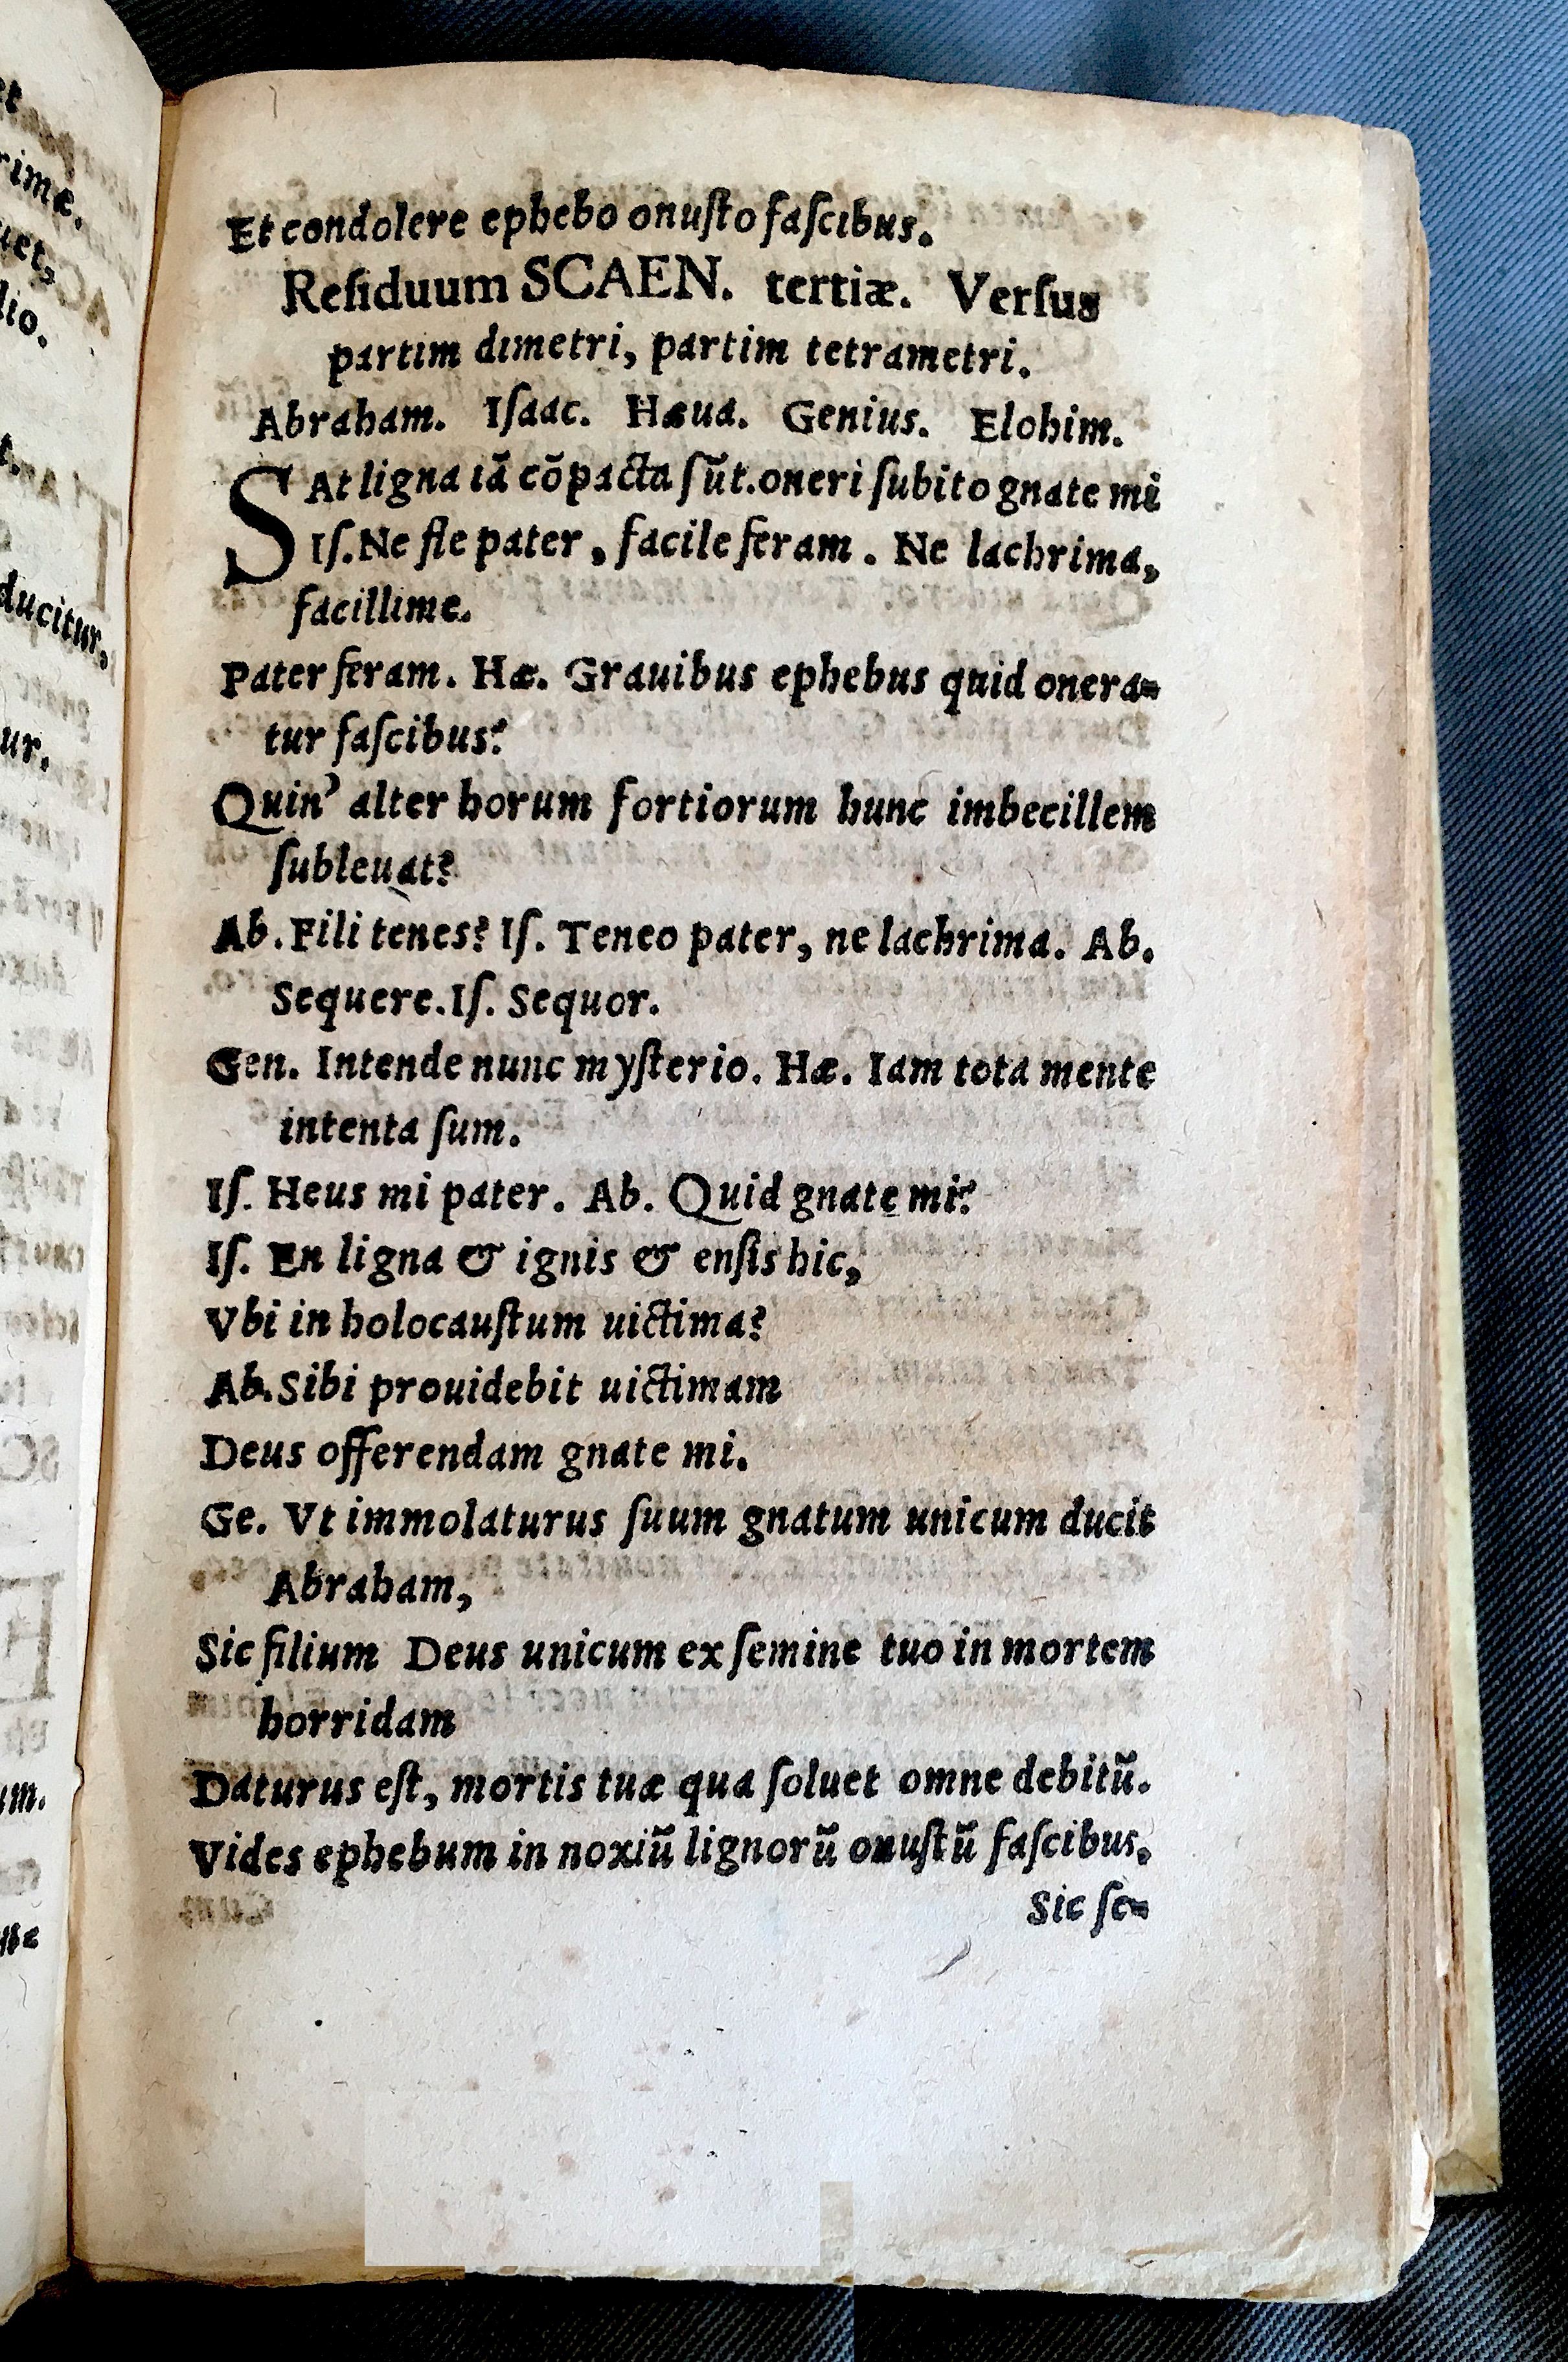 Et condolere ephebo onuſto faſcibus.
Reſiduum SCAEN. tertiæ. Verſus
partim dimetri, partim tetrametri.
Abraham. Iſaac. Hæua. Genius. Elohim.
SAt ligna iã cõpacta ſũt. oneri ſubito gnate mi
Iſ. Ne fle pater, facile feram. Ne lachrima,
facillime.
Pater feram. Hæ. Grauibus ephebus quid onera-
tur faſcibus?
Quin' alter horum fortiorum hunc imbecillem
ſubleuat?
Ab. Fili tenes? Iſ. Teneo pater, ne lachrima. Ab.
Sequere. Iſ. Sequor.
Gen. Intende nunc myſterio. Hæ. Iam tota mente
intenta ſum.
Iſ. Heus mi pater. Ab. Quid gnate mi?
Iſ. En ligna & ignis & enſis hic,
Vbi in holocauſtum uictima?
Ab. Sibi prouidebit uictimam
Deus offerendam gnate mi.
Ge. Vt immolaturus ſuum gnatum unicum ducit
Abraham,
Sic filium Deus unicum ex ſemine tuo in mortem
horridam
Daturus eſt, mortis tuæ qua ſoluet omne debitũ.
Vides ephebum in noxiũ lignorũ onuſtũ faſcibus.
Sic ſe-